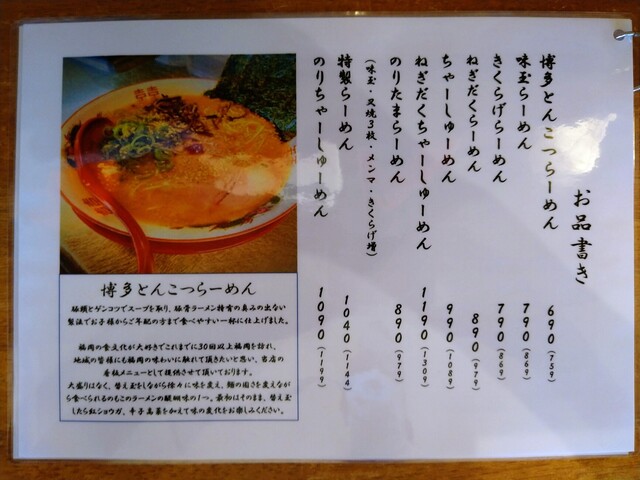 お品書き
博多とんこつらーめん 690(759)
味玉らーめん 790(869)
きくらげらーめん 790(869)
ねぎだくらーめん 890(979)
ちゃーしゅーめん 990(1089)
ねぎだくちゃーしゅーめん 1190(1309)
のりたまらーめん 890(979)
(味玉・叉焼3枚・メンマ・きくらげ増)
特製らーめん 1040(1144)
のりちゃーしゅーめん 1090(1199)
博多とんこつらーめん
豚頭とゲンコツでスープを取り、豚骨ラーメン特有の臭みの出ない
製法でお子様からご年配の方まで食べやすい一杯に仕上げました。
福岡の食文化が大好きでこれまでに30回以上福岡を訪れ、
地域の皆様にも福岡の味わいに触れて頂きたいと思い、当店の
看板メニューとして提供させて頂いております。
大盛りはなく、替え玉をしながら徐々に味を変え、麺の固さを変えなが
ら食べられるのもこのラーメンの醍醐味の1つ。最初はそのまま、替え玉
したら紅ショウガ、辛子高菜を加えて味の変化をお楽しみください。